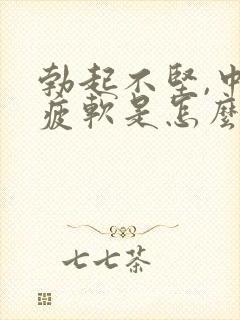 勃起不坚,中
疲軟是怎麼
七七茶